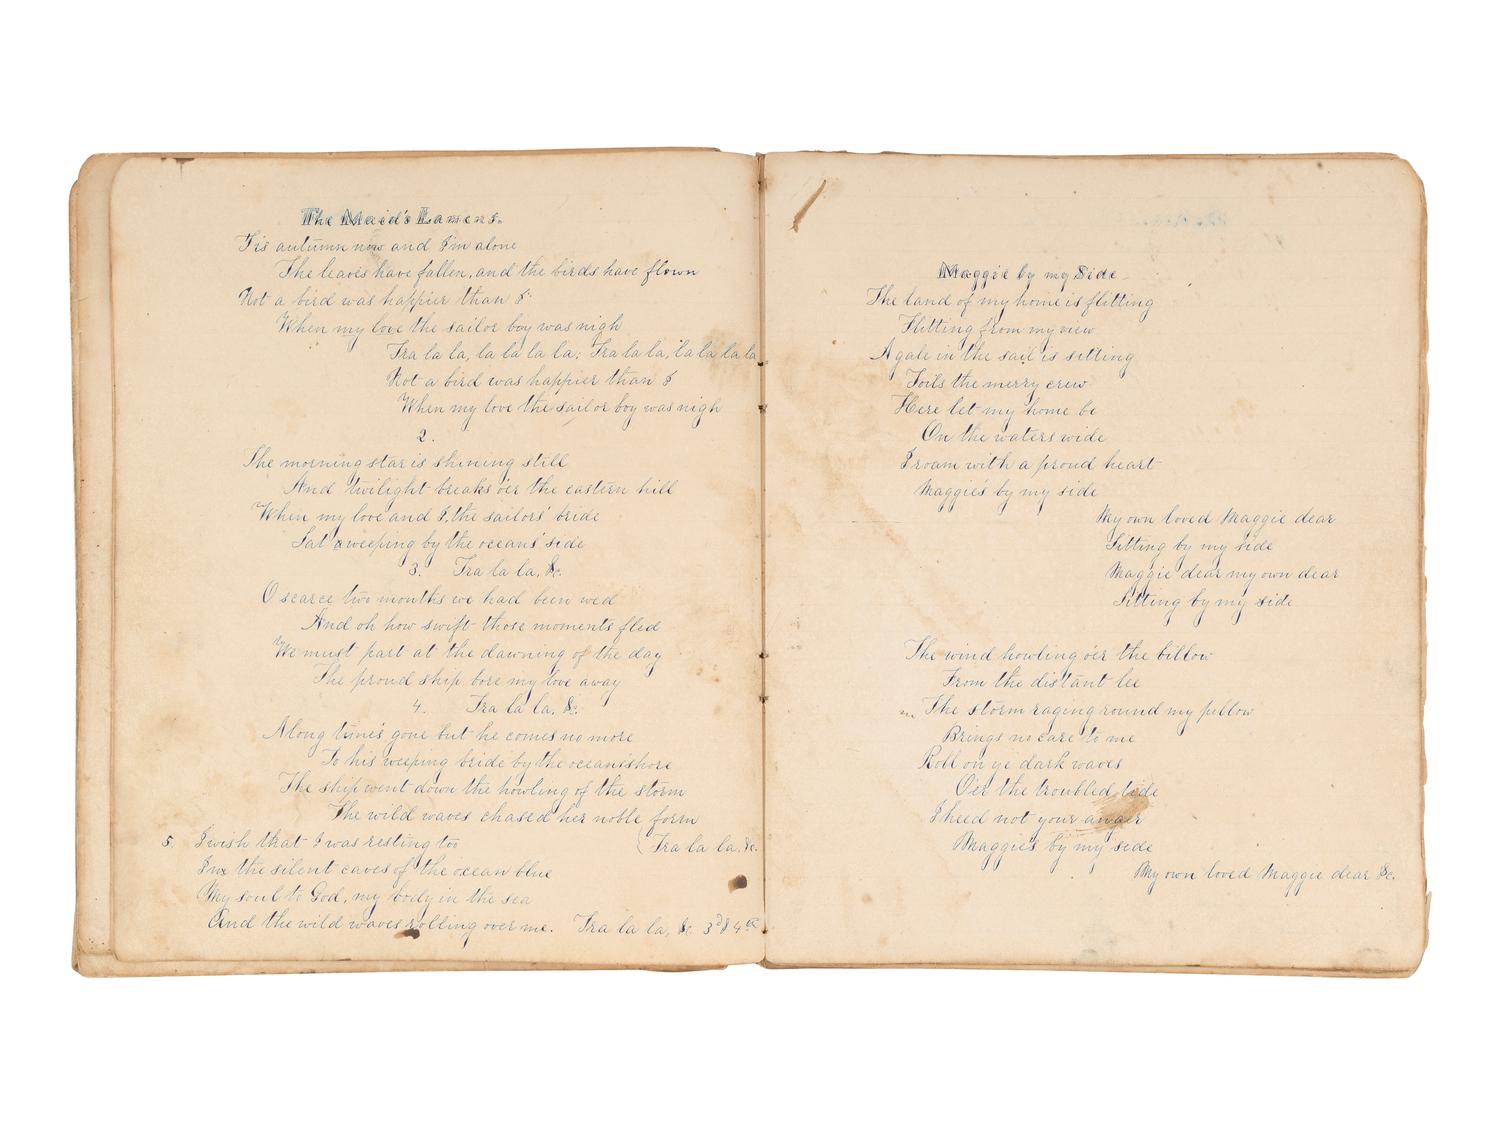 The Maid's Lament.
Tis autumn now and I'm alone
The leaves have fallen, and the birds have flown
Not a bird was happier than I
When my love the sailor boy was nigh
Tra la la, la la la la; Tra la la, la la la la
Not a bird was happier than I
When my love the sailor boy was nigh
2.
The morning star is shining still
And twilight breaks o'er the eastern hill
When my love and I, the sailors' bride
Sat a weeping by the oceans' side
3. Tra la la, &c.
O scarce two months we had been wed
And oh how swift those moments fled
We must part at the dawning of the day
The proud ship bore my love away
4. Tra la la, &c.
A long time's gone but he comes no more
To his weeping bride by the oceanshore
The ship went down the howling of the storm
The wild waves chased her noble form
5. I wish that I was resting too (Tra la la, &c.
In the silent caves of the ocean blue
My soul to God, my body in the sea
And the wild waves rolling over me. Tra la la, &c 3d & 4th
Maggie by my Side
The land of my home is flitting
Flitting from my view
A gale in the sail is sitting
Toils the merry crew
Here let my home be
On the waters wide
I roam with a proud heart
Maggie's by my side
My own loved Maggie dear
Sitting by my side
Maggie dear my own dear
Sitting by my side
The wind howling o'er the billow
From the distant lee
The storm raging round my pillow
Brings no care to me
Roll on ye dark waves
O'er the troubled tide
I heed not your anger
Maggie's by my side
My own loved Maggie dear &c.